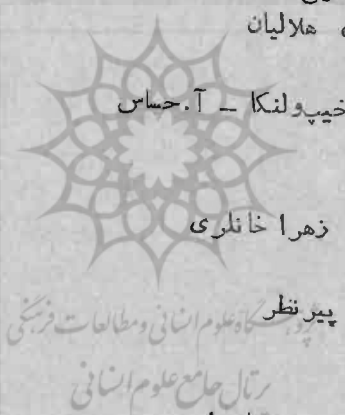 هلالیان
خیپولنکا ـ آ.حساس
زهرا خانلری
پیر نظر
پژوهشگاه علوم انسانی و مطالعات فرهنگی
پرتال جامع علوم انسانی